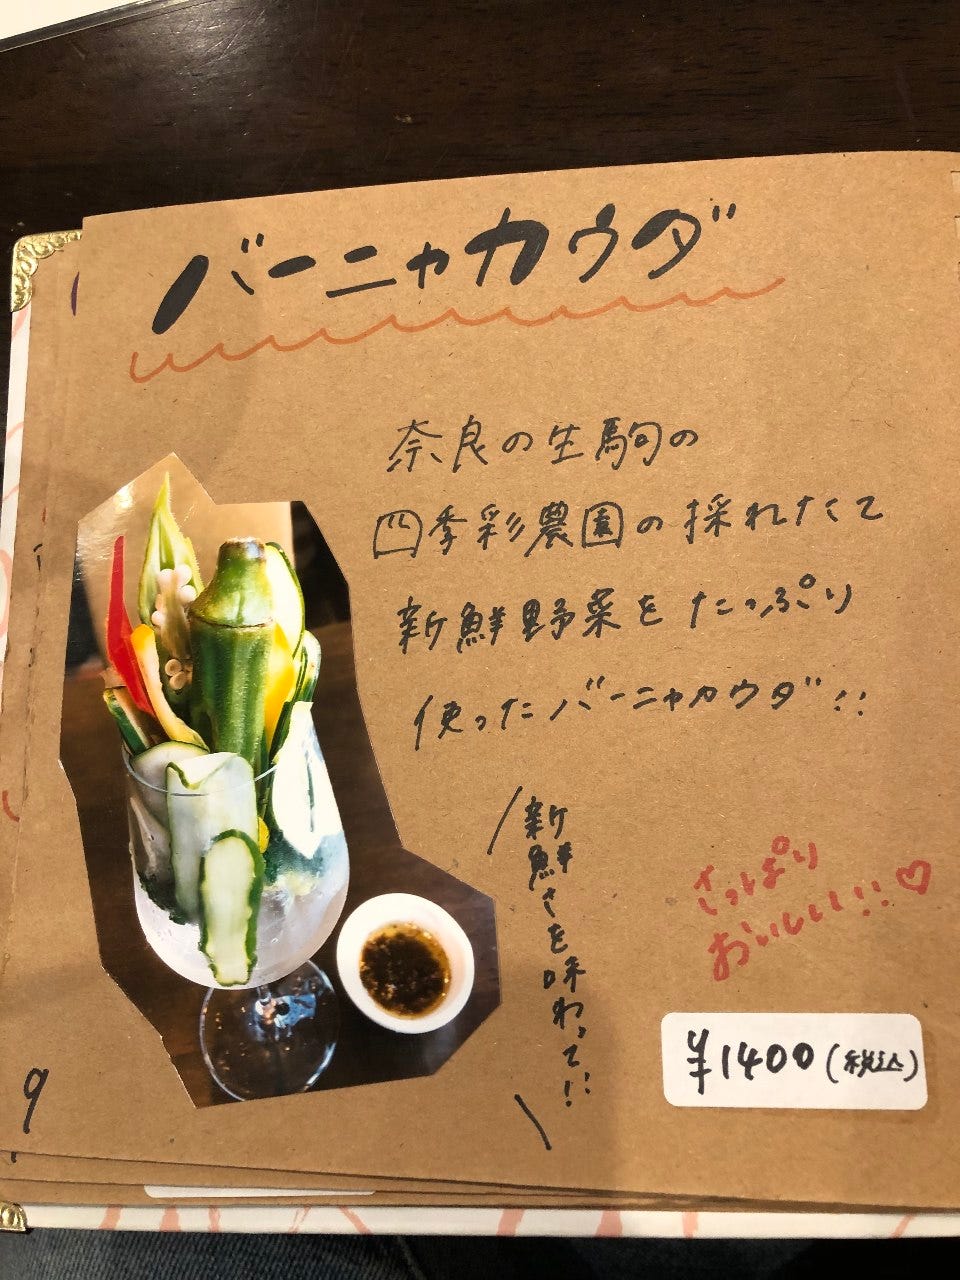 バーニャカウダ
奈良の生駒の
四季彩農園の採れたて
新鮮野菜をたっぷり
使ったバーニャカウダ!!
新鮮さを味わって!!
さっぱり
おいしい!!♡
¥1400(税込)
9